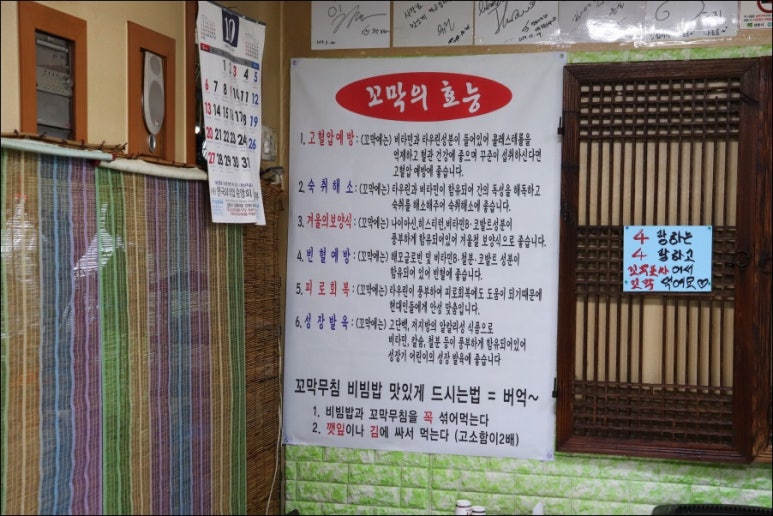 10
1 2 3 4 5
6 7 8 9 10 11 12
13 14 15 16 17 18 19
20 21 22 23 24 25 26
27 28 29 30 31
꼬막의 효능
1. 고혈압예방 : (꼬막에는) 비타민과 타우린성분이 들어있어 콜레스테롤을
억제하고 혈관 건강에 좋으며 꾸준이 섭취하신다면
고혈압 예방에 좋습니다.
2. 숙취해소 : (꼬막에는) 타우린과 비타민이 함유되어 간의 독성을 해독하고
숙취를 해소해주어 숙취해소에 좋습니다.
3. 겨울의보양식 : (꼬막에는) 나이아신,히스티딘,비타민B·코발트성분이
풍부하게 함유되어있어 겨울철 보양식으로 좋습니다.
4. 빈혈예방 : (꼬막에는) 헤모글로빈 및 비타민B·철분·코발트 성분이
함유되어 있어 빈혈에 좋습니다.
5. 피로회복 : (꼬막에는) 타우린이 풍부하여 피로회복에도 도움이 되기때문에
현대인들에게 안성 맞춤입니다.
6. 성장발육 : (꼬막에는) 고단백, 저지방의 알칼리성 식품으로
비타민, 칼슘, 철분 등이 풍부하게 함유되어있어
성장기 어린이의 성장 발육에 좋습니다
꼬막무침 비빔밥 맛있게 드시는법 = 버억~
1. 비빔밥과 꼬막무침을 꼭 섞어먹는다
2. 깻잎이나 김에 싸서 먹는다 (고소함이2배)
4랑하는
4랑하고
꼬옥 먹어요♡